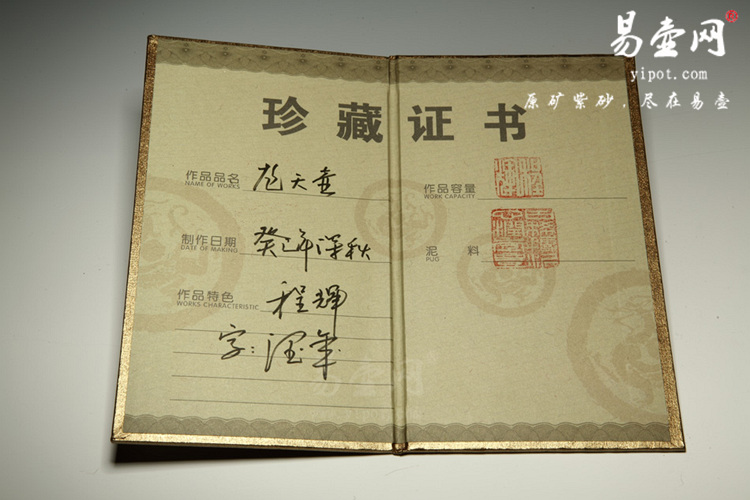 易壶网
yipot.com
原矿紫砂，尽在易壶
珍藏证书
作品品名
NAME OF WORKS
天壶
制作日期
DATE OF MAKING
癸巳年深秋
作品特色
WORKS CHARACTERISTIC
程辉
字：
作品容量
WORK CAPACITY
泥料
PUG
易壶网